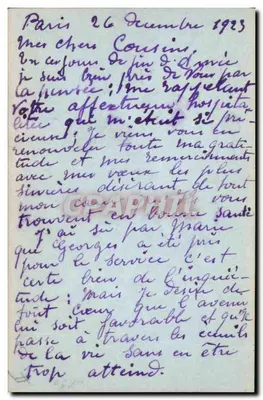 Paris 26 decembre 1923
Mes chers Cousins,
En ces jours de fin d'année
je suis bien près de vous par
la pensée; me rappelant
votre affectueuse hospita
lité qui m'était si pré
cieuse; je viens vous en
renouveler toute ma grati
tude et mes remerciements
avec mes vœux les plus
sincères désirant de tout
mon vous
trouvent en bonne santé
J'ai su par Marie
que Georges a été pris
pour le service c'est
certe bien de l'inquié
tude; mais je désire de
tout cœur que l'avenir
lui soit favorable et qu'il
passe à travers les
de la vie sans en être
trop atteind.